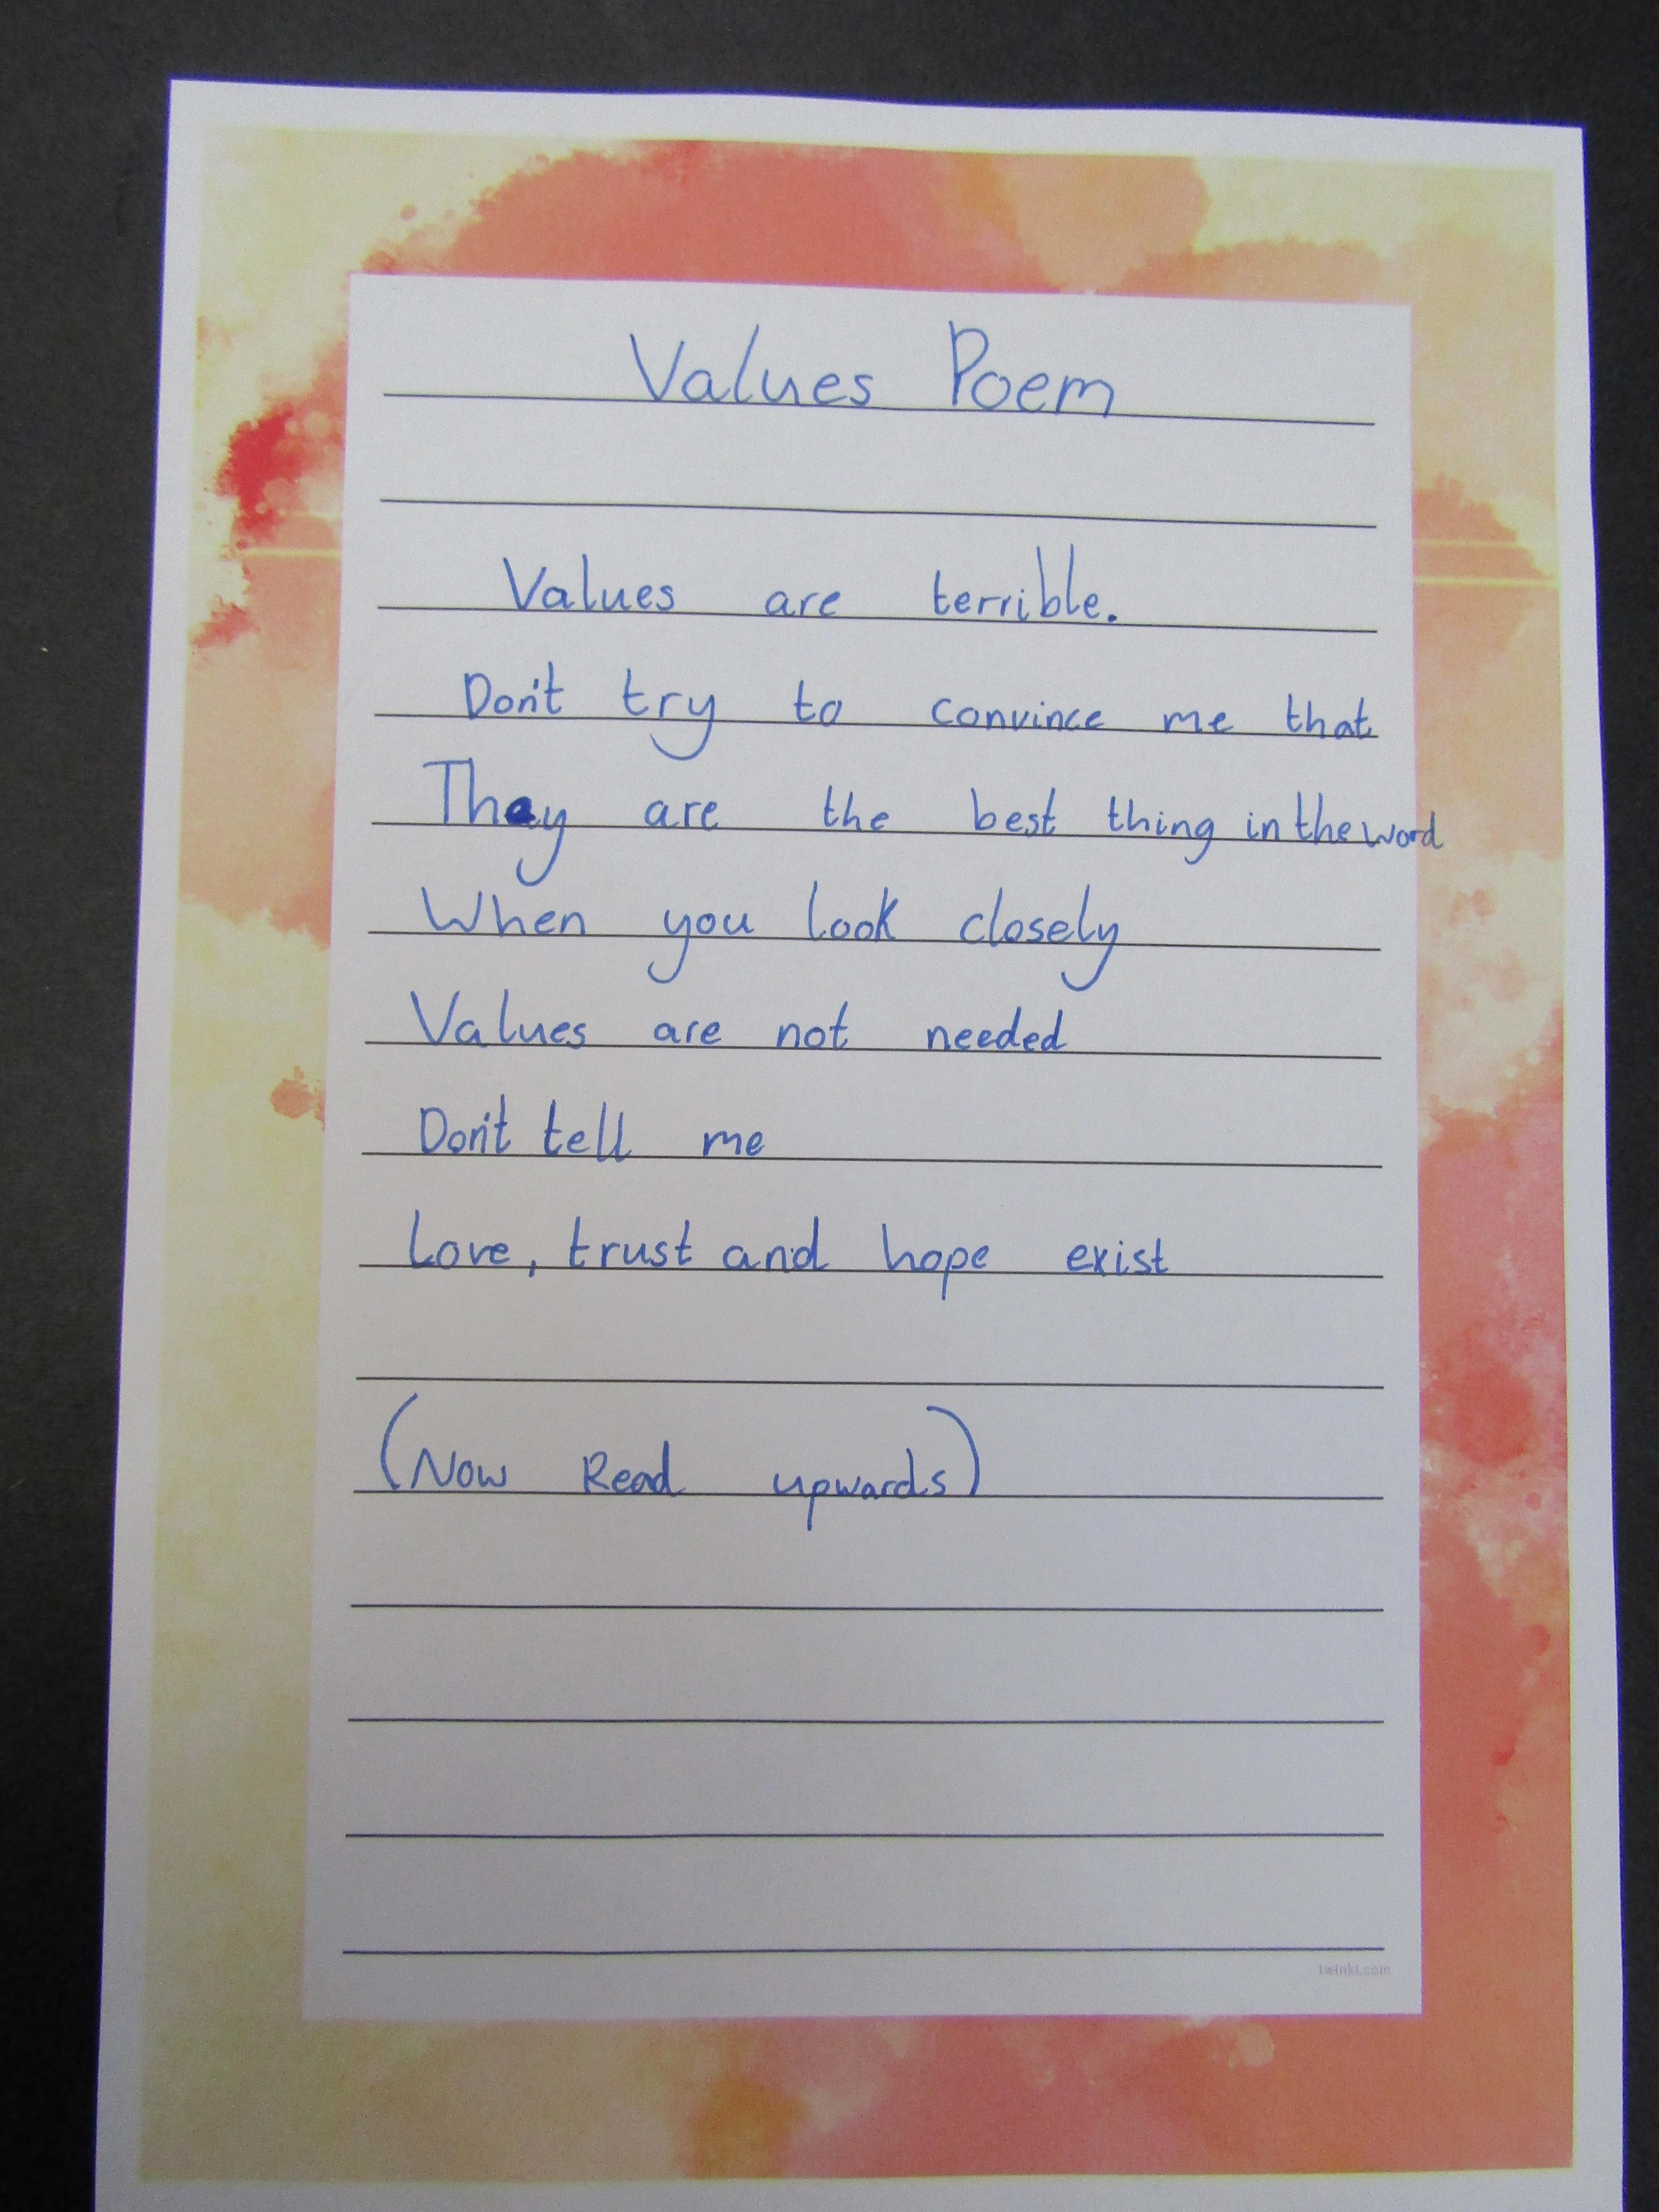 Values Poem
Values are terrible.
Don't try to convince me that
They are the best thing in the word
When you look closely
Values are not needed
Don't tell me
Love, trust and hope exist
(Now Read upwards)
twinkl.com